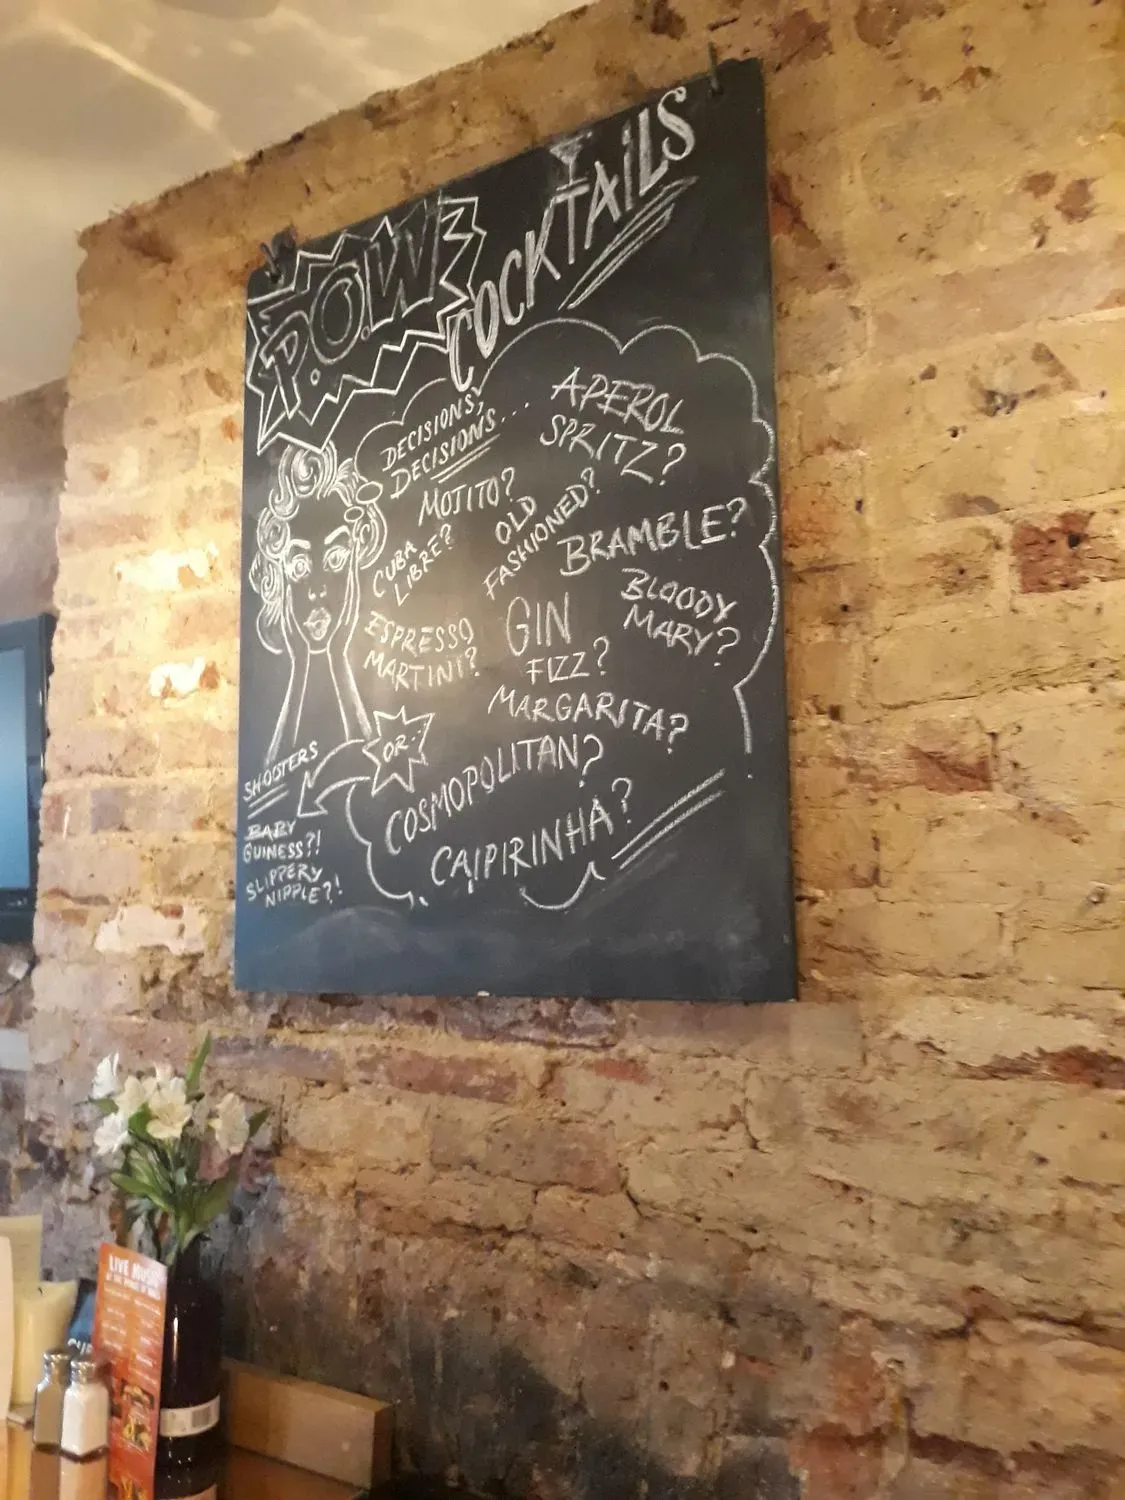 P.O.W
COCKTAiLS
DECISIONS,
DECISIONS...
APEROL
SPRITZ?
MOJITO?
OLD
FASHIONED?
CUBA
LIBRE?
BRAMBLE?
BLOODY
MARY?
ESPRESSO
MARTINI?
GIN
FIZZ?
MARGARITA?
OR..
COSMOPOLITAN?
CAIPIRINHA?
SHOOTERS
BABY
GUINESS?!
SLIPPERY
NIPPLE?!
LIVE MUSIC